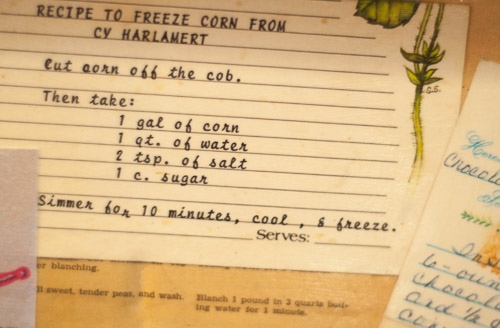 RECIPE TO FREEZE CORN FROM
CY HARLAMERT
Cut corn off the cob.
Then take:
1 gal of corn
1 qt. of water
2 tsp. of salt
1 c. sugar
Simmer for 10 minutes, cool , & freeze.
Serves:
er blanching.
ll sweet, tender peas, and wash.
Blanch 1 pound in 2 quarts boil-
ing water for 1 minute.
G.S.
and